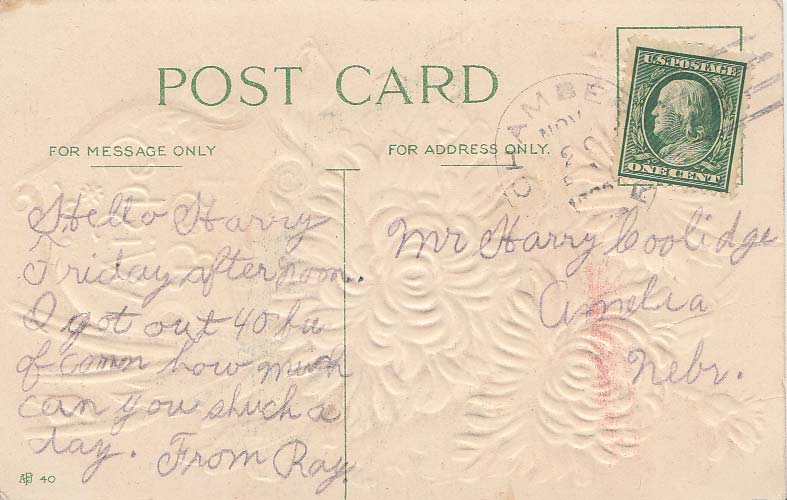 POST CARD
FOR MESSAGE ONLY
FOR ADDRESS ONLY.
U.S. POSTAGE
ONE CENT
CHAMBE
NOV
Hello Harry
Friday afternoon.
I got out 40 bu
of how much
can you shuck a
day. From Ray.
Mr Harry Coolidge
Amelia
Nebr.
40